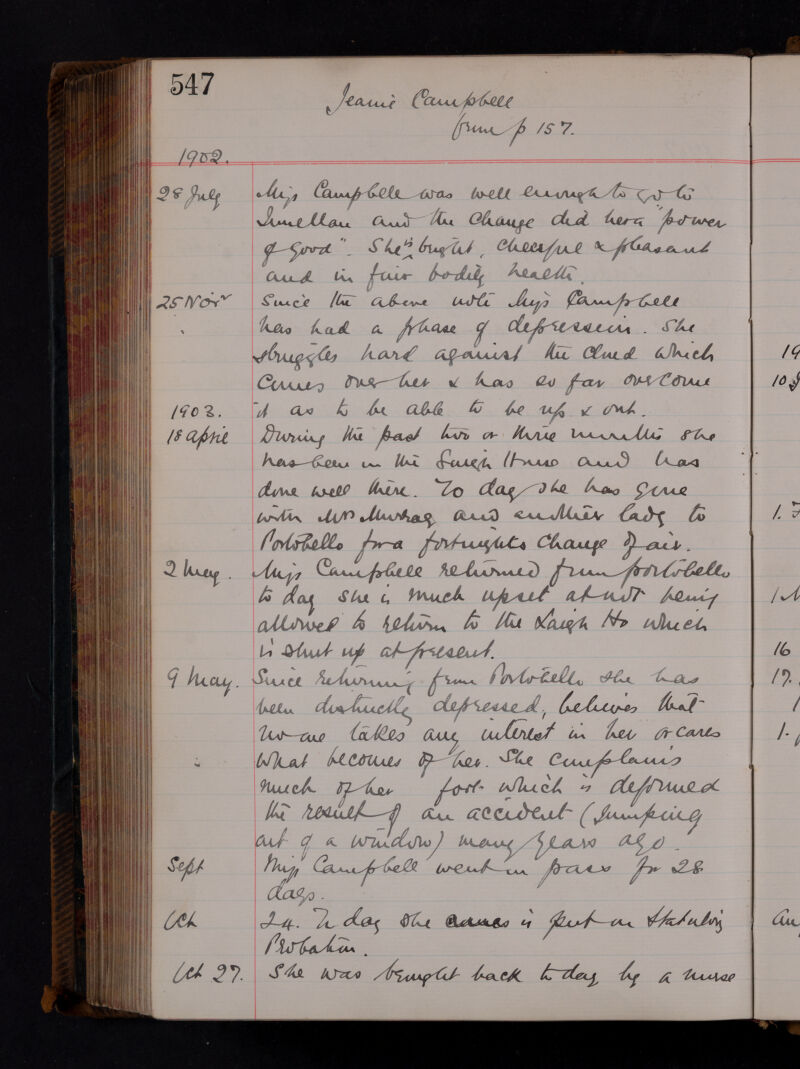 547
Jeanie Campbell
from p 157.
1902.
28 July Miss Campbell was well enough to go to
Innellan and the change did her a "power
of good". She is bright, cheerful & pleasant
and in fair bodily health.
25 Novr Since the above note Miss Campbell
has had a phase of depression. She
struggles hard against the cloud which
comes over her & has so far overcome
1903. it as to be able to be up & out.
18 April During the past two or three months she
has been in the Laigh House and has
done well there. To day she has gone
with Mrs Murray and another lady to
Portobello for a fortnights change of air.
2 May. Miss Campbell returned from Portobello
to day she is much upset at not being
allowed to return to the Laigh Ho which
is shut up at present.
9 May. Since returning from Portobello she has
been distinctly depressed, believes that
no one takes any interest in her or cares
what becomes of her. She complains
much of her foot which is deformed
the result of an accident (Jumping
out of a window) many years ago.
Sept Miss Campbell went on pass for 28
days.
Oct 24. To day she is put on Statutory
Probation.
Oct 27. She was brought back to day by a nurse
19
10
1.
16
17.
1.